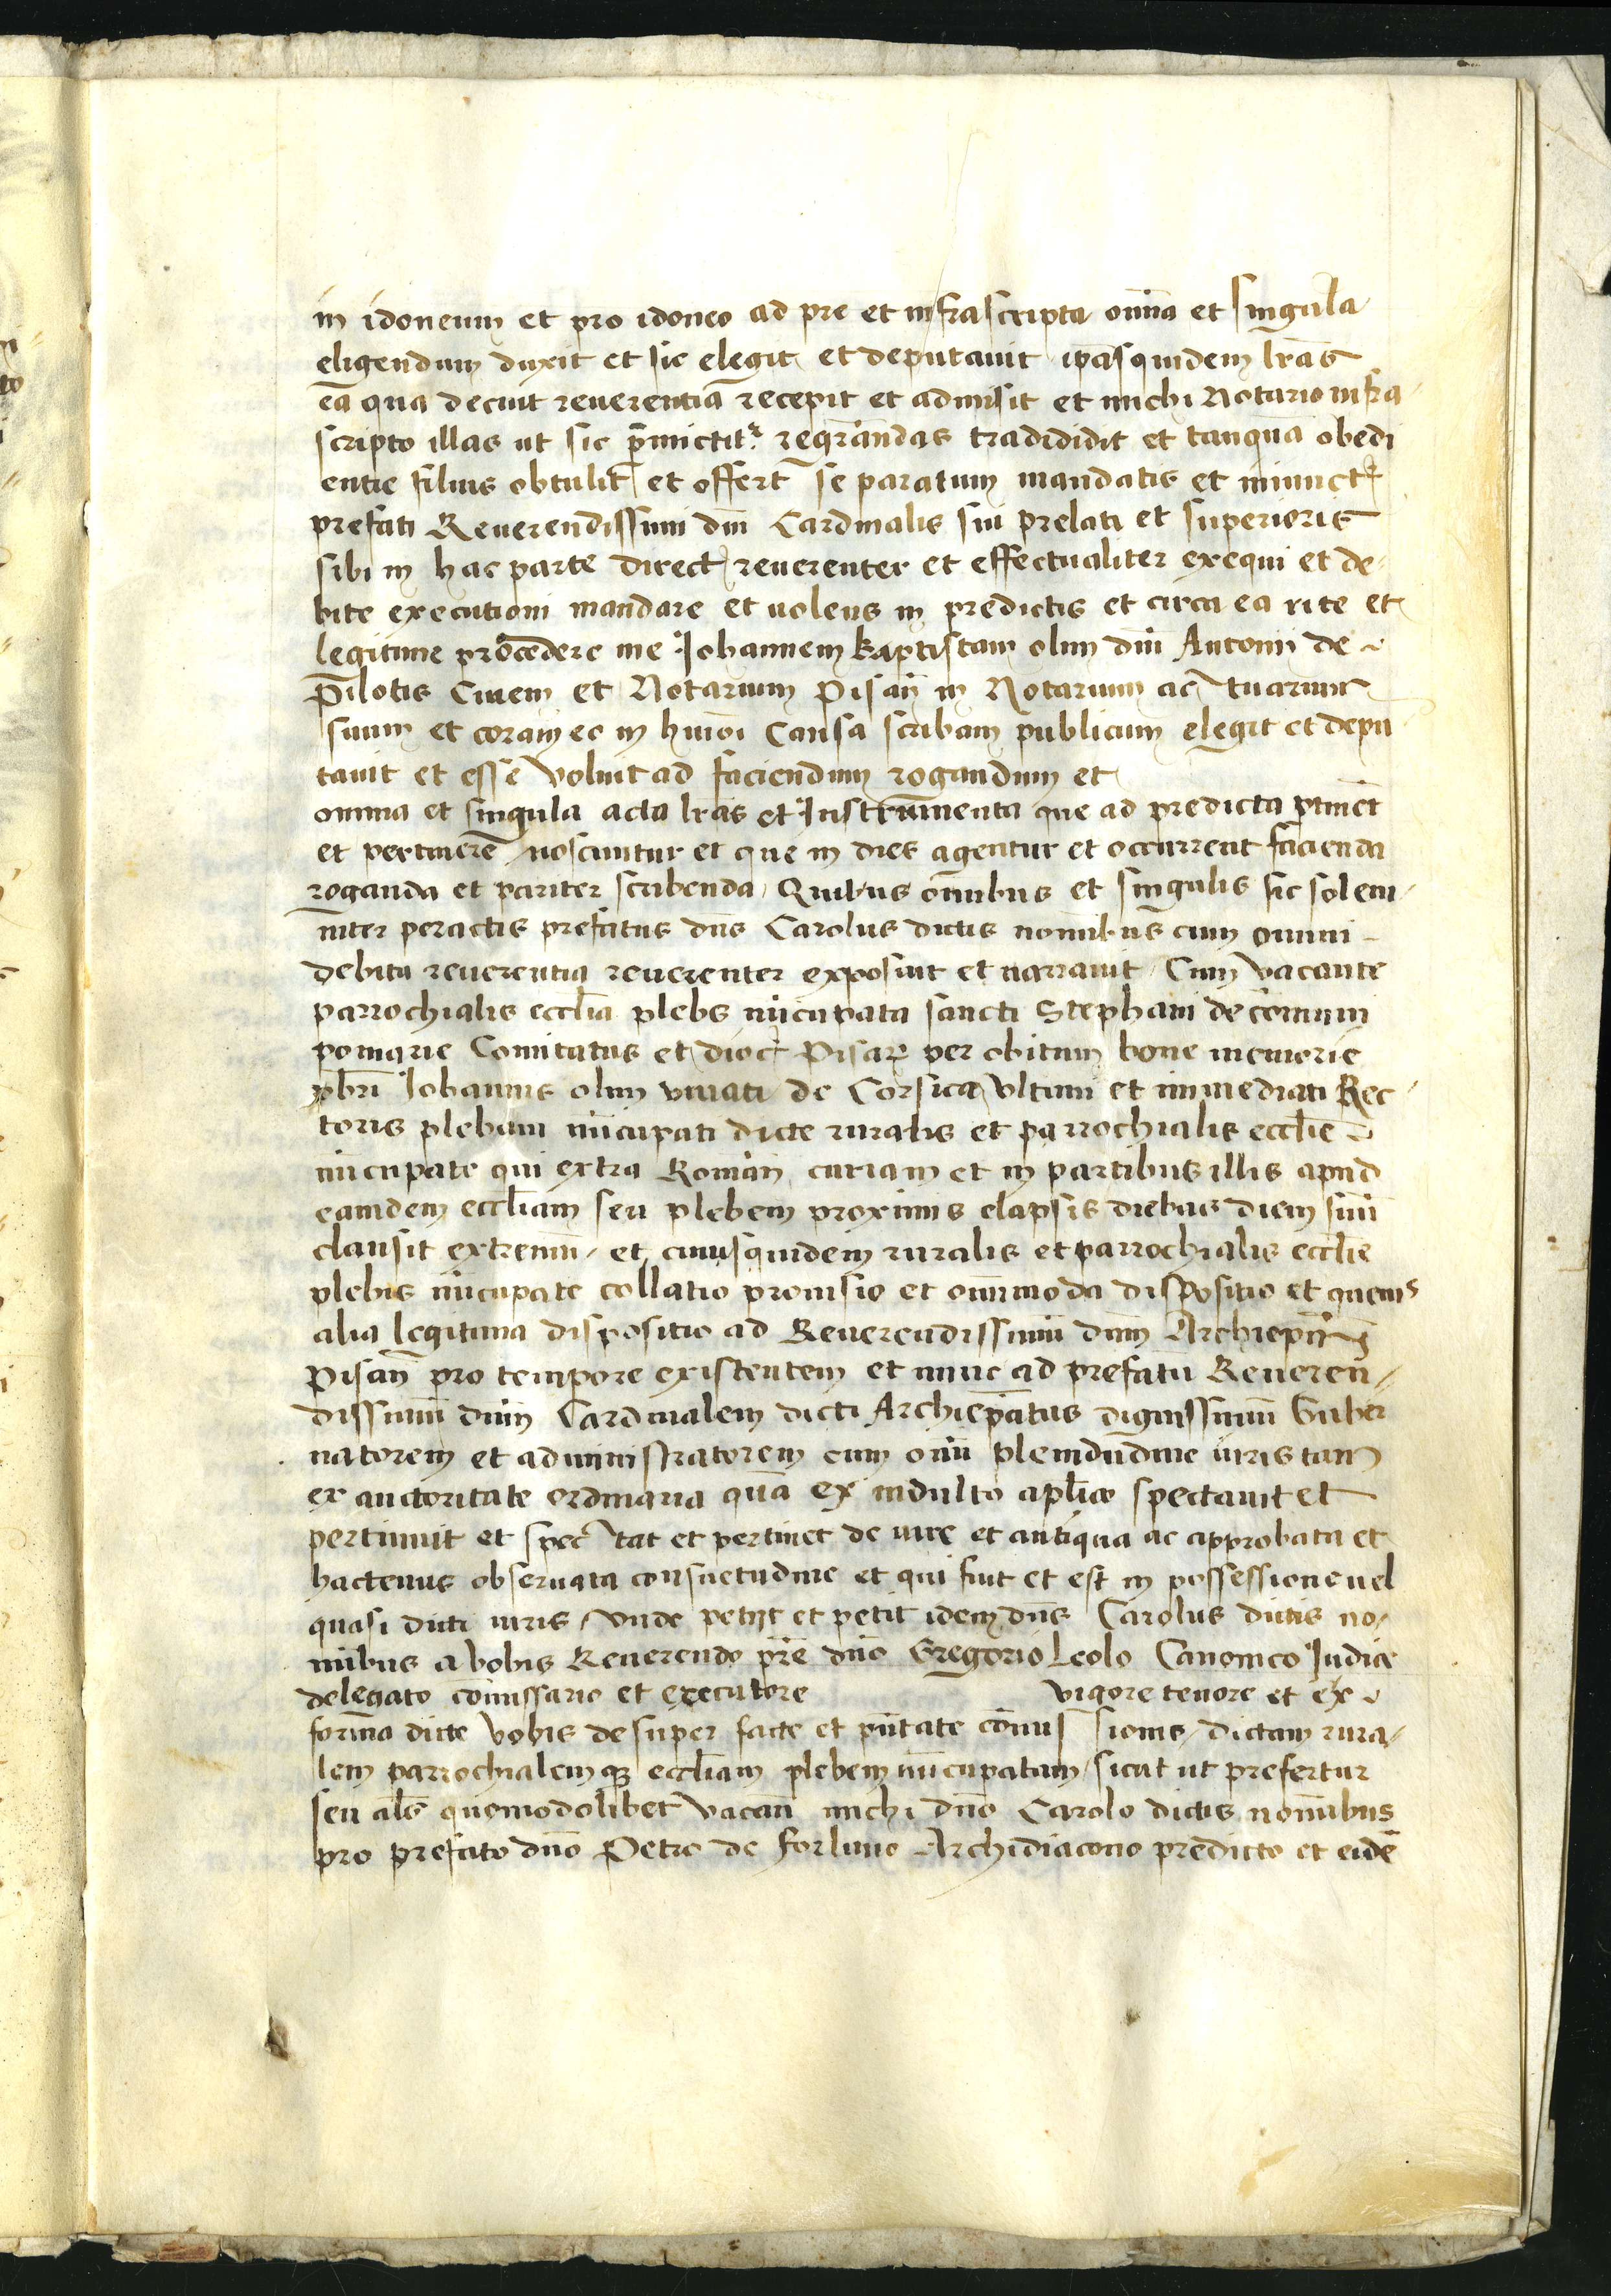 in idoneum et pro idoneo ad pre et infrascripta oĩna et singula
eligendum duxit et sic elegit et deputauit ipasquidem lr̃as
eã qua decuit reuerentia recepit et admisit et michi Notario infra
scripto illas ut sic p̃mictitr regr̃andas tradididit et tanquã obedi
entie filius obtulit et offert se paratum mandatis et iniunct
prefati Reuerendissimi dñi Cardinalis sui prelati et superioris
sibi in hac parte direct reuerenter et effectualiter exequi et de
bite executioni mandare et uolens in predictis et circa ea rite et
legitime procedere me Johannem baptistam olim dñi Antonii de
Pilotis Ciuem et Notarium Pisañ in Notarium actuarium
suum et coram eo in huiõi Causa scribam publicum elegit et depu
tauit et esse voluit ad faciendum rogandum et
omnia et singula acta lr̃as et Instrumenta que ad predicta ptineñt
et pertinere noscuntur et que in dies agentur et occurrent facienda
roganda et pariter scribenda Quibus om̃ibus et singulis sic solem
niter peractis prefatus dñs Carolus dictis nomĩbus cum omni
debita reuerentia reuerenter exposuit et narrauit Cum vacante
parrochialis eccl̃ia plebs nũcupata sancti Stephani de comuni
pomarie Comitatus et dioc Pisaꝝ per obitum bone memorie
p̃bri Iohannis olim viuati de Corsica Vltimi et immediati Rec
toris plebani nũcupati dicte ruralis et parrochialis eccl̃ie
nũcupate qui extra Romañ curiam et in partibus illis apud
eamdem eccl̃iam seu plebem proximis elapsis diebus diem suũ
clausit extremũ et cuiusquidem ruralis et parrochialis eccl̃ie
plebis nũcupate collatio prouisio et om̃imoda dispositio et queuis
alia legitima dispositio ad Reuerendissimũ dñm Archiep̃m
Pisañ pro tempore existentem et nunc ad prefatũ Reueren
dissimũ dñm Cardinalem dicti Archiep̃atus dignissimũ Guber
natorem et administratorem cum om̃i plenitudine iuris tam
ex auctoritate ordinaria quã ex indulto apl̃ico spectauit et
pertinuit et spectat et pertinet de iure et antiqua ac approbata et
hactenus obseruata consuetudine et qui fuit et est in possessione uel
quasi dicti iuris Vnde petijt et petit idem dñs Carolus dictis no
minibus a vobis Reuerendo pr̃e dño Gregorio Leolo Canonico Judice
delegato com̃issario et executore vigore tenore et ex
forma dicte vobis de super facte et p̃ntate com̃issionis dictam rura
lem parrochialemqꝫ eccl̃iam plebem nũcupatam sicut ut prefertur
seu al̃s quomodolibet vacañ michi dño Carolo dictis nom̃ibus
pro prefato dño Petro de forliuio Archidiacono predicto et eidẽ